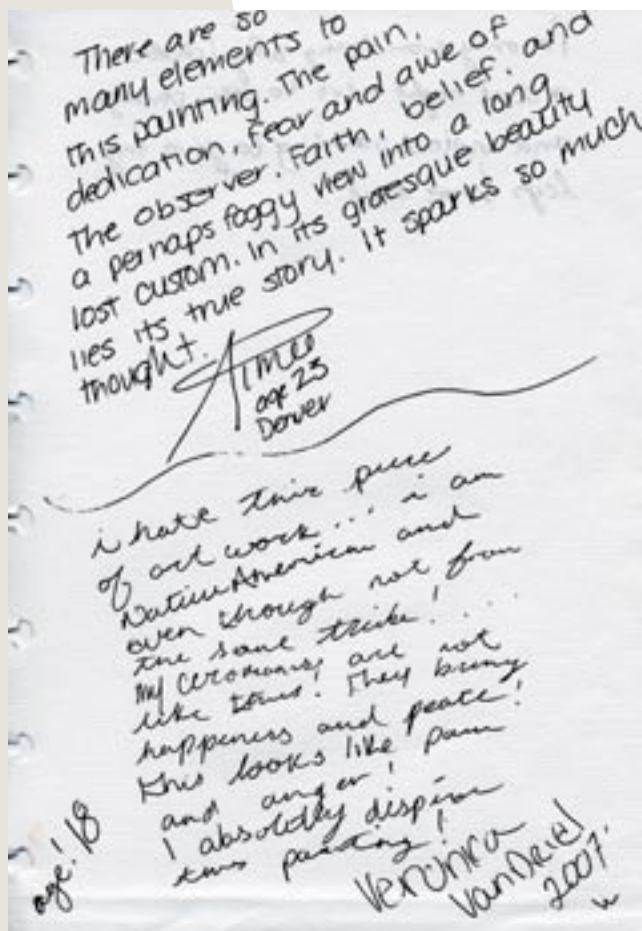 There are so
many elements to
this painting. The pain,
dedication, fear and awe of
the observer. Faith, belief, and
a perhaps foggy view into a long
lost custom. In its grotesque beauty
lies its true story. It sparks so much
thought.
Aimee
age 23
Denver
i hate this piece
of art work... i am
Native American and
even though not from
the same tribe! ....
my ceromonies are not
like this! They bring
happiness and peace!
this looks like pain
and anger!
I absolutly dispise
this painting!
age! 18
Veronica
VanDriel
2007.